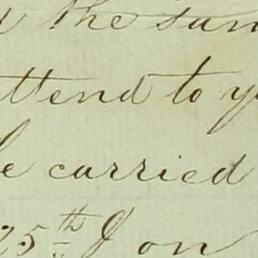 the sun
attend to y
e carried
25th J on